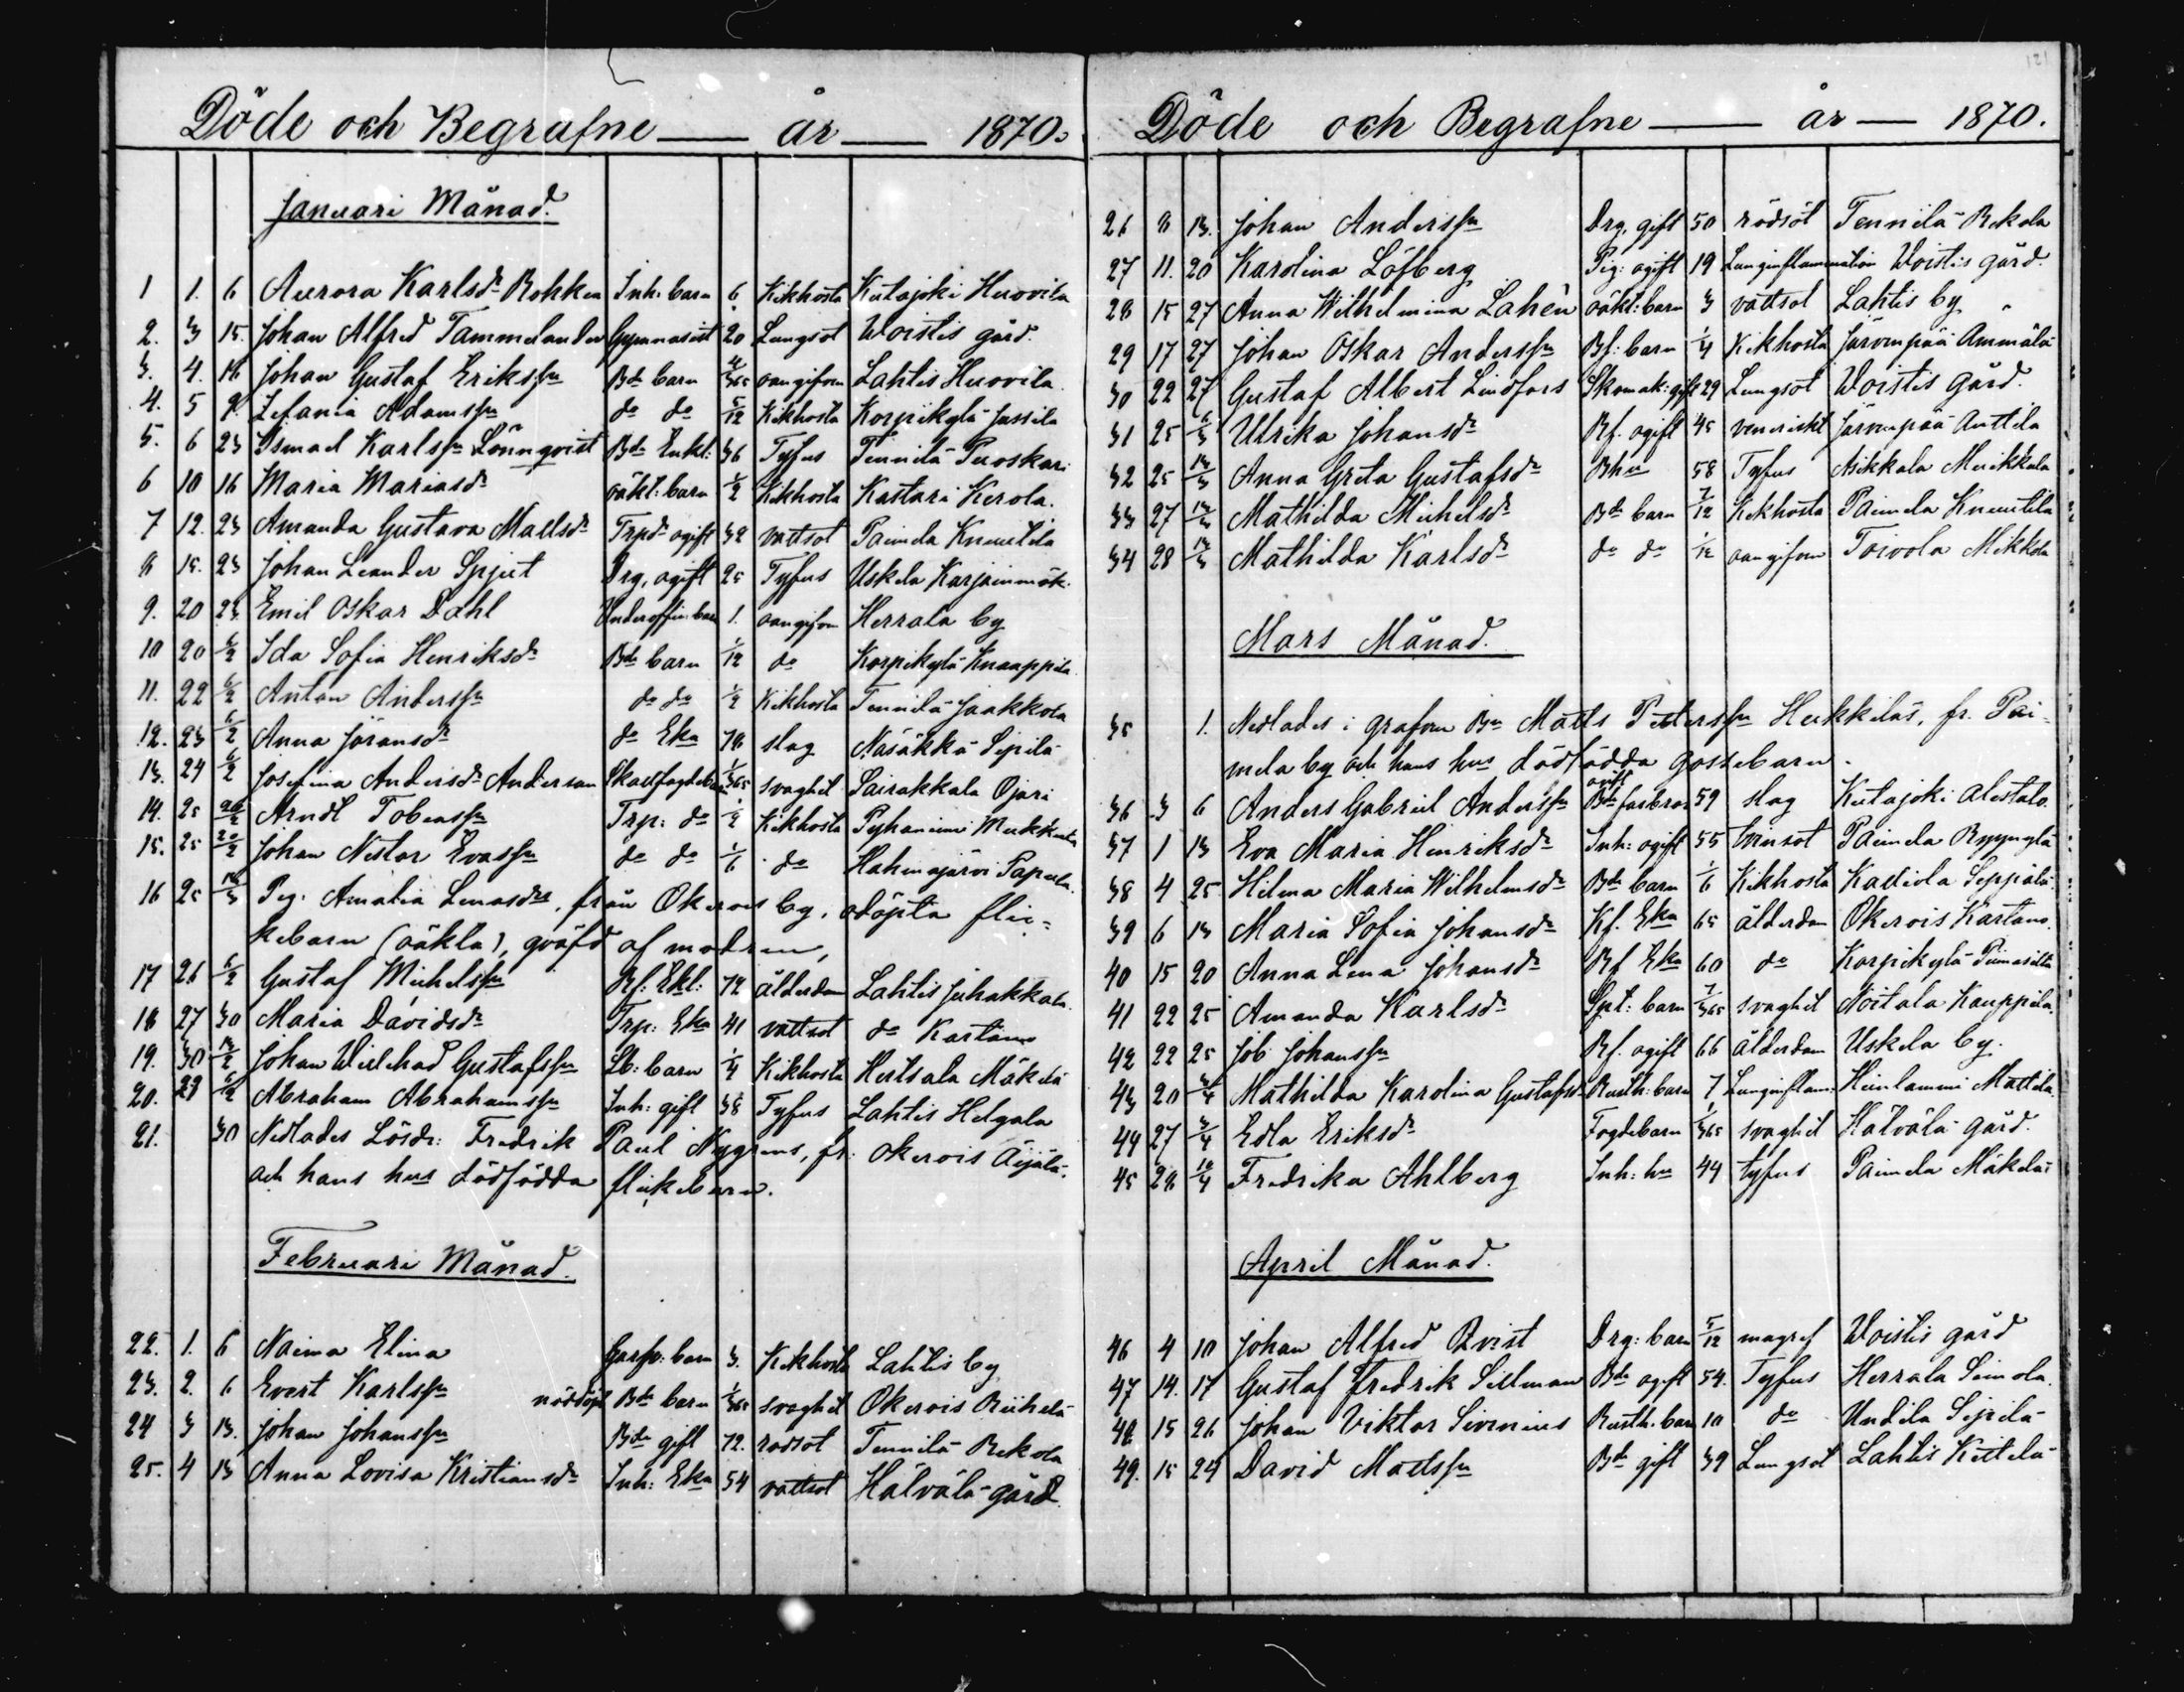 Döde och Begrafne — år — 1870.
Januari Månad.
1 1. 6 Aurora Karlsdr Rokken Inh. barn 6 Kikhosta Kutajoki Huovila
2. 3 15. Johan Alfred Tammelander Gymnasist 20 Lungsot Woistis gård.
3. 4. 16 Johan Gustaf Erikssn Bde barn 4/365 oangifven Lahtis Huovila
4. 5 9. Zefania Adamssn do do 5/12 Kikhosta Korpikylä Jussila
5. 6 23 Ismael Karlssn Lönnqvist Bde Enkl: 36 Tyfus Tennilä Puoskari
6 10 16 Maria Mariasdr oäkt: barn 1/2 Kikhosta Kastari Kerola.
7 12. 23 Amanda Gustava Mattsdr Trpdr ogift 32 vattsot Paimela Knuutila
8 15. 23 Johan Leander Spjut Drg, ogift 25 Tyfus Uskela Karjainmäk.
9. 20 23 Emil Oskar Dahl Underoffic. barn 1. oangifven Herrala by
10 20 6/2 Ida Sofia Henriksdr Bde barn 1/12 do Korpikylä Knaappila
11. 22 6/2 Anton Anderssn do do 1/2 Kikhosta Tennilä Jaakkola
12. 23 6/2 Anna Göransdr do Eka 78 slag Näsäkkä Sipilä
13. 24 6/2 Josefina Andersdr Anderson 1/365 svaghet Sairakkala Ojari
14. 25 20/2 Arndt Tobiassn Trp: do 1/2 Kikhosta Pyhäniemi
15. 25 20/2 Johan Nestor Evassn do do 1/6 do Hahmajärvi Papula.
16 25 13/3 Pig. Amalia Lenasdrs, från Okerois by, odöpta flic-
kebarn (oäkta), qväfd af modren,
17 26 6/2 Gustaf Michelssn Bf: Ekl: 72 ålderdom Lahtis Juhakkala
18 27 30 Maria Davidsdr Trp: Eka 41 vattsot do Kartano
19. 30 13/2 Johan Willehad Gustafssn Lb: barn 1/4 Kikhosta Heitsala Mäkelä
20. 29 6/2 Abraham Abrahamssn Inh: gift 38 Tyfus Lahtis Helgala
21. 30 Nedlades Lösdr: Fredrik Paul Nygrens, fr. Okerois Äijälä,
och hans hus dödfödda flickebarn.
Februari Månad.
22. 1. 6 Naima Elina Garfv: barn 3. Kikhosta Lahtis by
23. 2. 6 Evert Karlssn nöddöpt Bde barn 1/365 svaghet Okerois Riihelä
24 3 13. Johan Johanssn Bde gift 72. rödsot Tennilä Rekola
25. 4 13 Anna Lovisa Kristiansdr Inh: Eka 54 vattsot Hälvälä gård.
Döde och Begrafne — år — 1870.
26 8 13. Johan Anderssn Drg, gift 50 rödsot Tennilä Rekola
27 11. 20 Karolina Löfberg Pig: ogift 19 Lunginflammation Woistis gård.
28 15 27 Anna Wilhelmina Lahén oäkt: barn 3 vattsot Lahtis by
29 17 27 Johan Oskar Anderssn Bf: barn 1/4 Kikhosta Järvenpää Ammälä
30 22 27 Gustaf Albert Lindfors Skomak: gift 29 Lungsot Woistis gård.
31 25 6/3 Ulrika Johansdr Bf. ogift 45 veneriskt Järvenpää Anttila
32 25 13/3 Anna Greta Gustafsdr Bhu 58 Tyfus Asikkala Muikkula
33 27 13/3 Mathilda Michelsdr Bde barn 7/12 Kikhosta Paimela Knuutila
34 28 13/3 Mathilda Karlsdr do do 1/12 oangifven Toivola Mikkola
Mars Månad.
35 1. Nedlades i grafven Bn Matts Petterssn Heikkiläs, fr. Pai-
mela by och hans hus dödfödda gossebarn.
36 3 6 Anders Gabriel Anderssn ogift Bde farbror 59 slag Kutajoki Alestalo
37 1 13 Eva Maria Henriksdr Inh: ogift 55 tvinsot Paimela
38 4 25. Hilma Maria Wilhelmsdr Bde barn 1/6 Kikhosta Kaliola Seppälä
39 6 13 Maria Sofia Johansdr Kf. Eka 65 ålderdom Okerois Kartano.
40 15 20 Anna Lena Johansdr Bf Eka 60 do Korpikylä
41 22 25 Amanda Karlsdr Spt: barn 7/365 svaghet Noitala Kauppila.
42 22 25 Job Johanssn Bf. ogift 66 ålderdom Uskela by.
43 20 3/4 Mathilda Karolina Gustafsdr Rusth: barn 7 Lunginflam: Heinlammi Mattila.
44 27 3/4 Edla Eriksdr Fogdebarn 1/365 svaghet Hälvälä gård.
45 28 10/4 Fredrika Ahlberg Inh: hu 44 tyfus Paimela Mäkelä
April Månad.
46 4 10 Johan Alfred Qvist Drg: barn 5/12 magref Woistis gård
47 14. 17 Gustaf Fredrik Sillman Bde ogift 54. Tyfus Herrala Simola.
48 15 26 Johan Viktor Sirenius Rusth. barn 10 do Undila Sipilä
49. 15 24 David Mattssn Bde gift 39 Lungsot Lahtis Kittelä